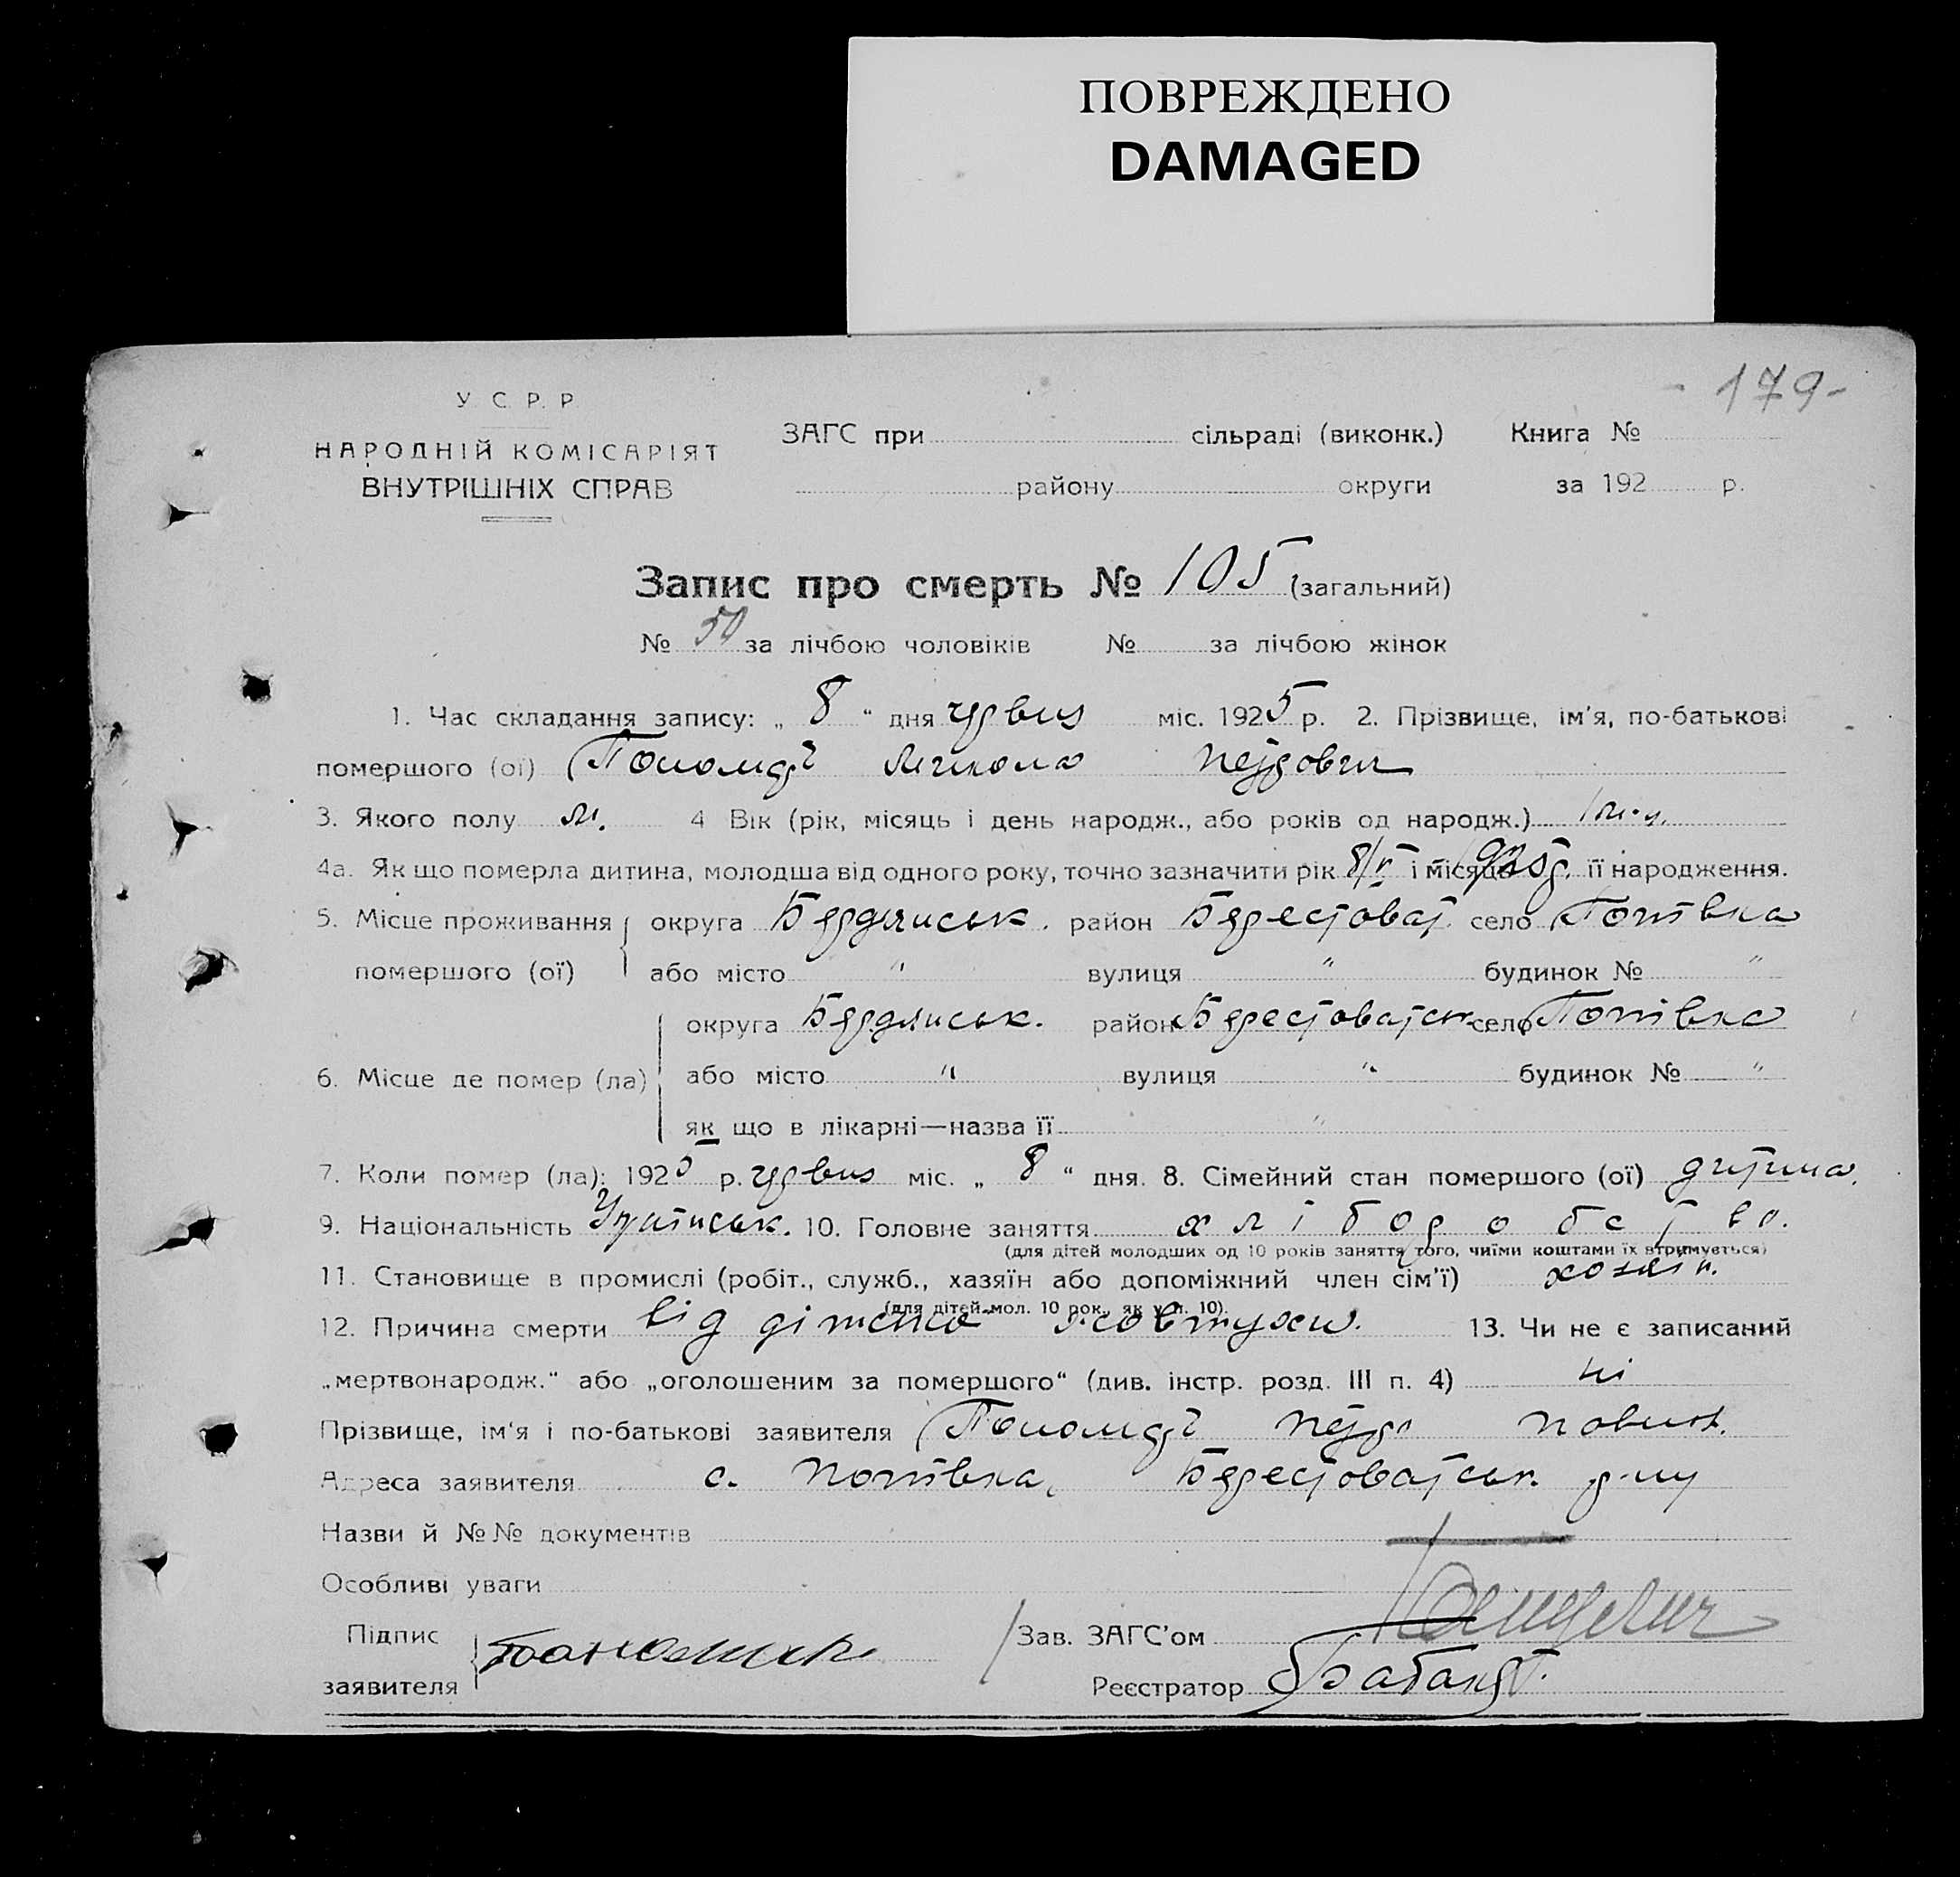 ПОВРЕЖДЕНО
DAMAGED
- 179 -
У. С. Р. Р.
НАРОДНІЙ КОМІСАРІЯТ
ВНУТРІШНІХ СПРАВ
ЗАГС при сільраді (виконк.) Книга №
району округи за 192 р.
Запис про смерть № 105 (загальний)
№ 50 за лічбою чоловіків № за лічбою жінок
1. Час складання запису: „ 8 “ дня червня міс. 1925 р. 2. Прізвище, ім'я, по-батькові
помершого (ої) Пономар Микола Петрович
3. Якого полу м. 4 Вік (рік, місяць і день народж., або років од народж.) 1 м.
4а. Як що померла дитина, молодша від одного року, точно зазначити рік 8/V і місяць її народження.
5. Місце проживання округа Бердянськ. район Берестоват. село Попівка
помершого (ої) або місто " вулиця " будинок № "
округа Бердянськ. район Берестоватськ. село Попівка
6. Місце де помер (ла) або місто " вулиця " будинок № "
як що в лікарні—назва її "
7. Коли помер (ла): 1925 р. червня міс. „ 8 “ дня. 8. Сімейний стан помершого (ої) дитина.
9. Національність Українськ. 10. Головне заняття хліборобство.
(для дітей молодших од 10 років заняття того, чиїми коштами їх втримується)
11. Становище в промислі (робіт., служб., хазяїн або допоміжний член сім'ї) хозяїн.
(для дітей мол. 10 рок., як у п. 10).
12. Причина смерти від жовтухи. 13. Чи не є записаний
„мертвонародж.“ або „оголошеним за помершого“ (див. інстр. розд. III п. 4) ні
Прізвище, ім'я і по-батькові заявителя Пономар Петро
Адреса заявителя с. Попівка, Берестоватськ. р-ну
Назви й №№ документів
Особливі уваги
Підпис
заявителя
Зав. ЗАГС'ом
Реєстратор